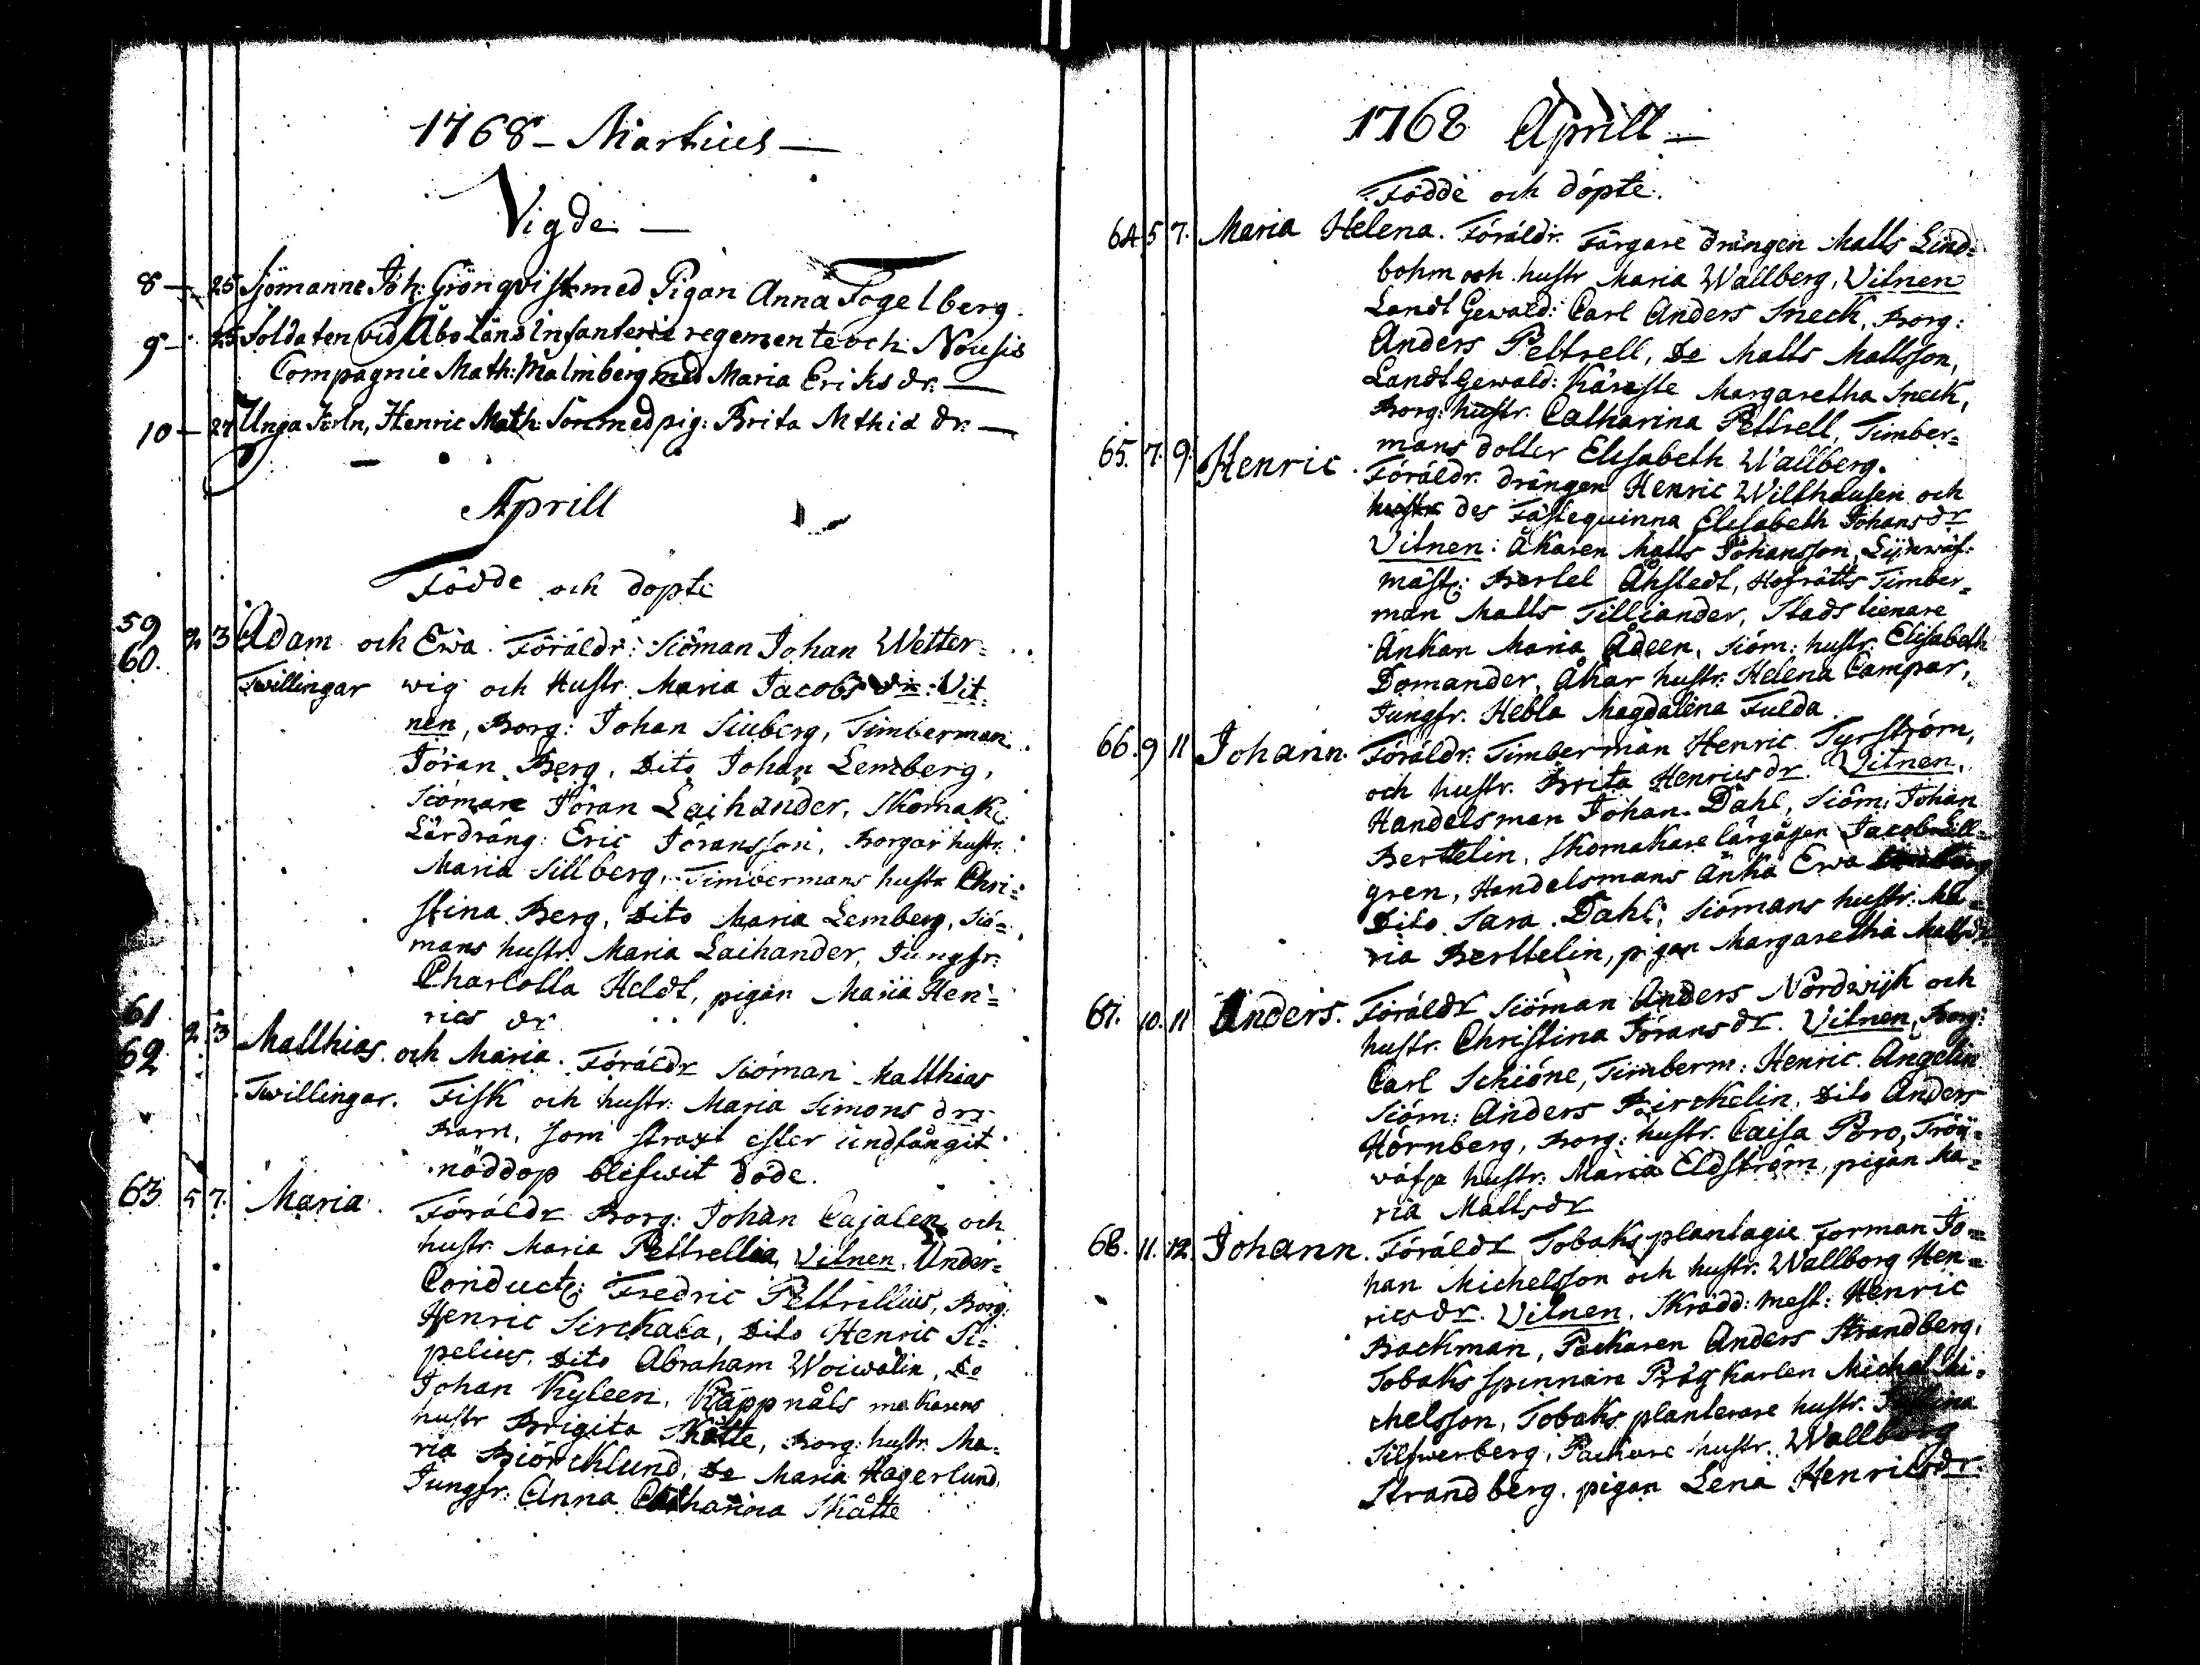 1768 - Martius -
Vigde -
8 - 25 Sjömanne Joh: Grönqvist med Pigan Anna Fogelberg.
9 - 25 Soldaten vid Åbo Läns Infanterie regemente och Nousis
Compagnie Math: Malmberg med Maria Eriks dr. -
10 - 27 Unga Karln, Henric Math: Son med pig: Brita Mthiæ dr. -
Aprill
Födde och döpte
59
60. 2 3 Adam och Ewa. Föräldr: Siöman Johan Wetter=
Twillingar wig och Hustr. Maria Jacobs dr: Vit
nen, Borg: Johan Siuberg, Timberman
Jöran Berg, Dito Johan Lemberg,
Siömare Jöran Laihander, Skomak:
Lärdräng: Eric Jöransson, Borgar hustr.
Maria Sillberg, Timbermans hustr Chri=
stina Berg, Dito Maria Lemberg, Siö=
mans hustr. Maria Laihander, Jungfr:
Charlotta Heldt, pigan Maria Hen=
rics dr
61
62 2 3 Matthias och Maria. Föräldr Siöman Matthias
Twillingar. Fisk och hustr: Maria Simons drs
Barn, som straxt efter undfångit
nöddop blefwit döde.
63 5 7. Maria. Föräldr Borg: Johan Cajalen och
hustr. Maria Pettrellia, Vitnen. Under=
Conduct: Fredric Pettrellius, Borg:
Henric Sirckala, Dito Henric Si=
pelius, Dito Abraham Woiwalin, Do
Johan Kyleen, Knappnåls makarens
hustr Brigita Skatte, Borg: hustr. Ma=
ria Biörcklund, Do Maria Hagerlund,
Jungfr: Anna Catharina Skatte
1768 Aprill -
Födde och döpte.
64 5 7. Maria Helena. Föräldr. Färgare drängen Matts Lind=
bohm och hustr Maria Wallberg, Vitnen
Landt Gewald: Carl Anders Sneck, Borg:
Anders Peltrell, Do Matts Mattsson,
Landt Gewald: Käreste Margaretha Sneck,
Borg: hustr. Catharina Peltrell, Timber=
mans dotter Elisabeth Wallberg.
65. 7. 9. Henric. Föräldr. drängen Henric Wilthausen och
des Fästequinna Elisabeth Johans dr
Vitnen: Åkaren Matts Johansson, Lijnwäf:
mäst: Bertel Åhstedt, Hofrätts Timber=
man Matts Tilliander, Stads tienare
Änkan Maria Ådeen, Siöm: hustr: Elisabeth
Domander, Åkar hustr: Helena Campar,
Jungfr. Hebla Magdalena Fulda.
66. 9 11 Johann. Föräldr: Timberman Henric Tyrström,
och hustr. Brita Henrics dr. Vitnen.
Handelsman Johan Dahl, Siöm: Johan
Bertelin, Skomakare lärgåssen Jacob Lill=
gren, Handelsmans Änka Ewa
Dito Sara Dahl, Siömans hustr: Ma=
ria Berttelin, pigan Margaretha Mattsdr
67. 10. 11 Anders. Föräldr Siöman Anders Nordwijk och
hustr. Christina Jörans dr. Vitnen, Borg:
Carl Schiöne, Timberm: Henric Ångelin
Siöm: Anders Birckelin, Dito Anders
Hörnberg, Borg: hustr. Caisa Poro, Tröij=
wäfva hustr: Maria Eldström, pigan Ma=
ria Mattsdr
68. 11. 12. Johann. Föräldr Tobaks plantagie Forman Jo=
han Michelsson och hustr. Wallborg Hen=
rics dr. Vitnen. Skrädd: mest: Henric
Backman, Packaren Anders Strandberg,
Tobaks spinnare Präg Karlen Michel Mi=
chelsson, Tobaks planterare hustr.
Silfwerberg, Packare hustr. Wallborg
Strandberg, pigan Lena Henricsdr.